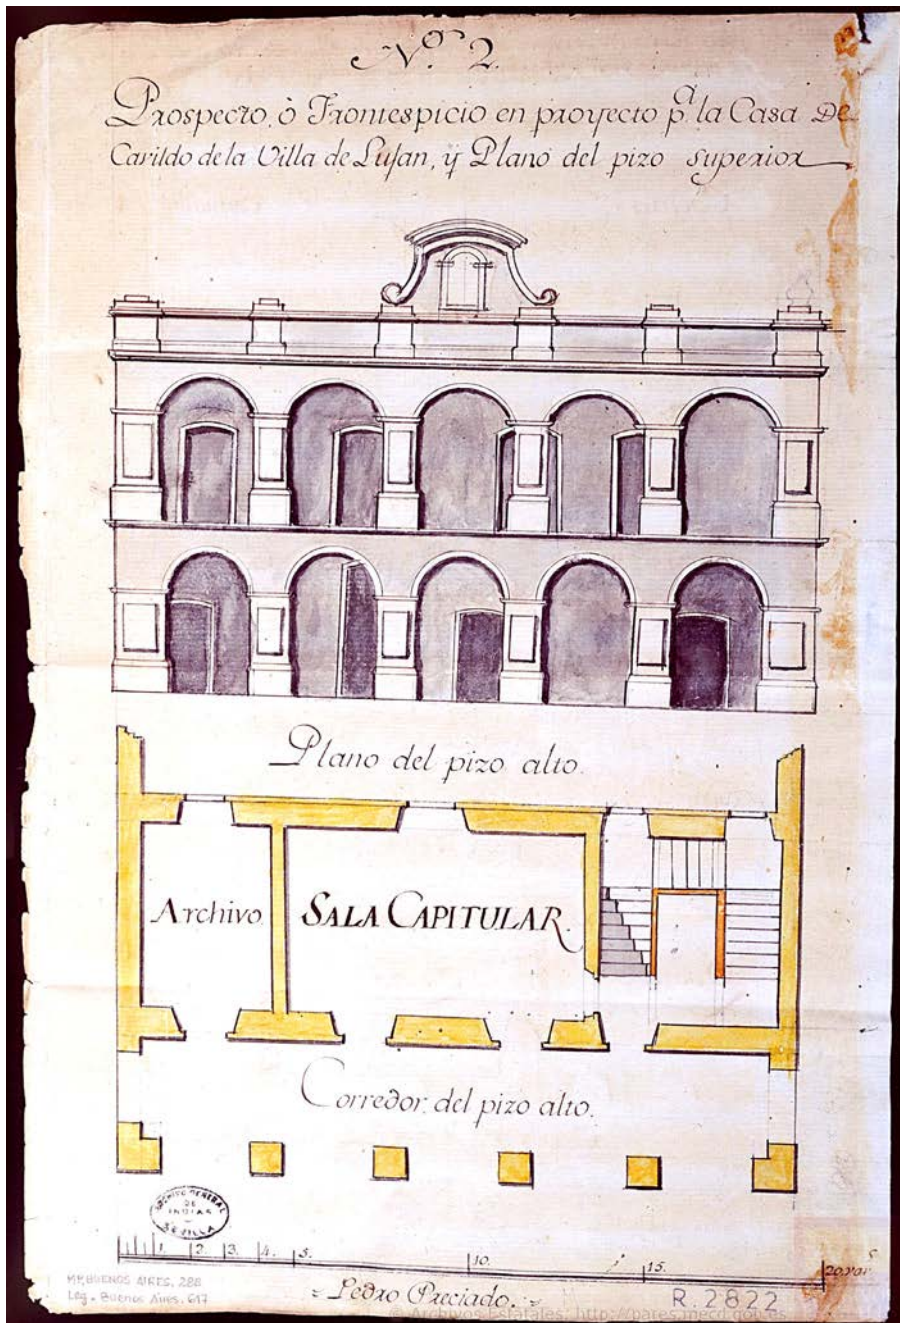 Nº. 2.
Prospecto, ò Frontespicio en proyecto pª. la Casa De
Cavildo de la Villa de Lujan, ÿ Plano del pizo superior
Plano del pizo alto.
Archivo.
SALA CAPITULAR.
Corredor del pizo alto.
ARCHIVO GENERAL
DE
INDIAS
SEVILLA
1. 2. 3. 4. 5. 10. 15. 20 vars
MP, BUENOS AIRES, 288
Leg. Buenos Aires, 617
Pedro Preciado.
R. 2822
© Archivos Estatales, http://pares.mecd.gob.es